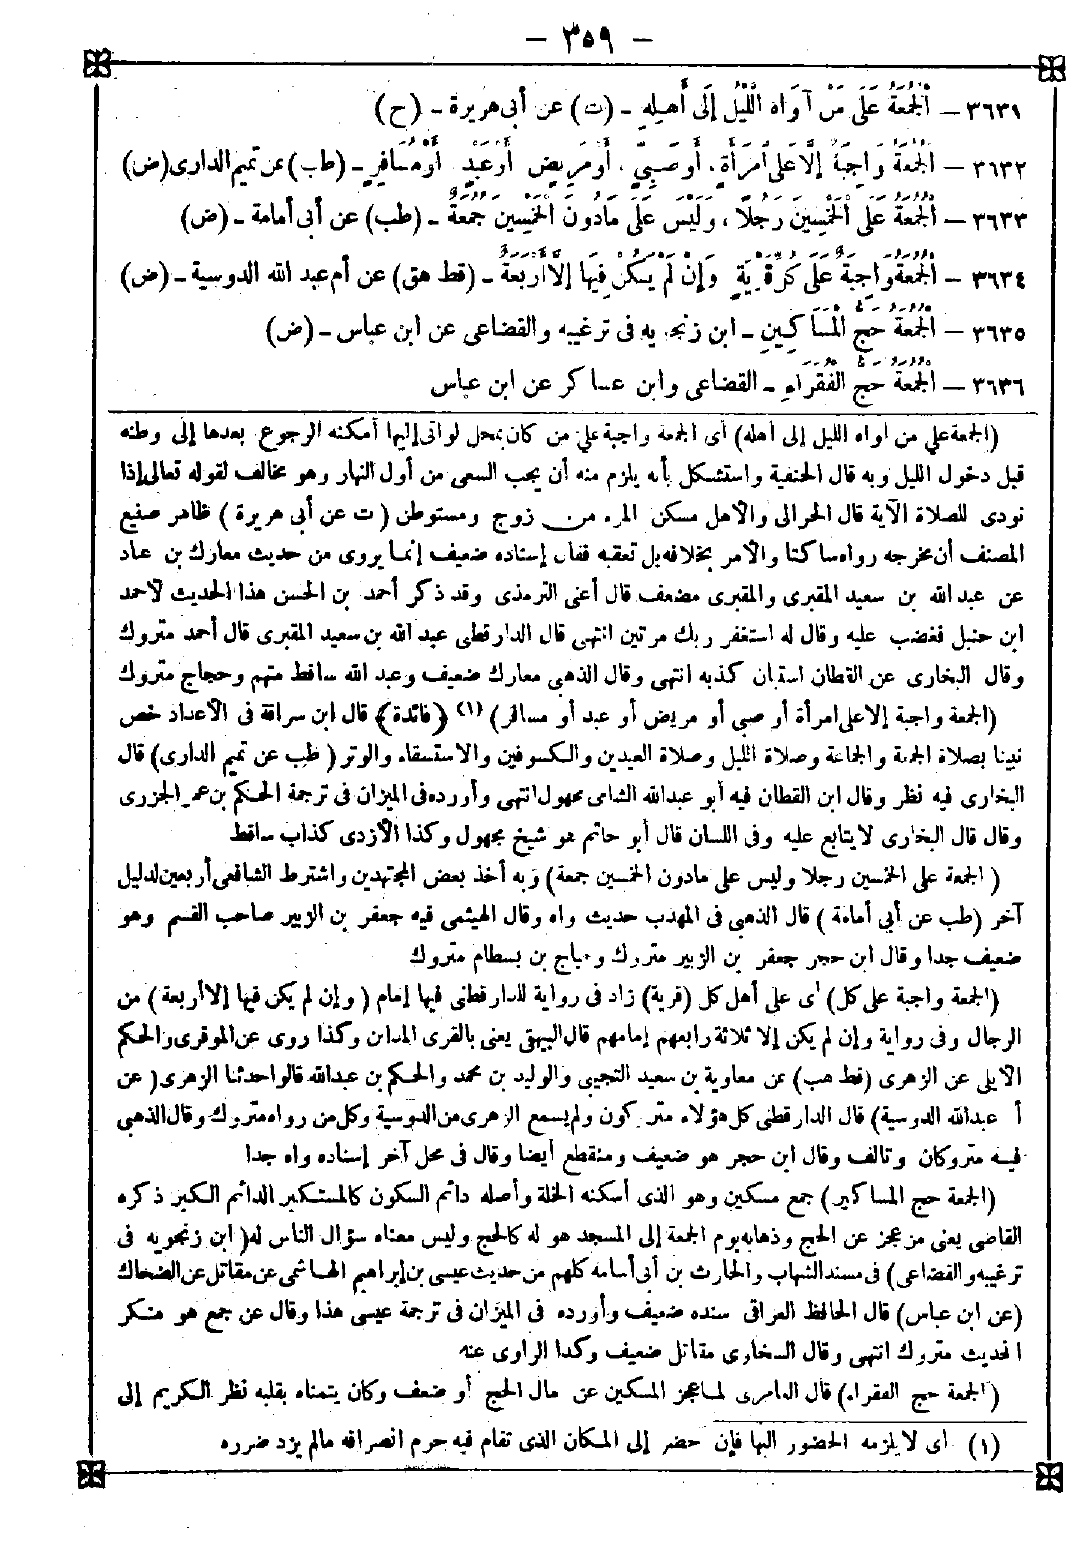 — ٣٥٩ —
٣٦٣١ — الْجُمُعَةُ عَلَى مَنْ آوَاهُ اللَّيْلُ إِلَى أَهْلِهِ - (ت) عن أبى هريرة - (ح)
٣٦٣٢ — الْجُمُعَةُ وَاجِبَةٌ إِلَّا عَلَى امْرَأَةٍ، أَوْ صَبِيٍّ، أَوْ مَرِيضٍ أَوْ عَبْدٍ أَوْ مُسَافِرٍ - (طب) عن تميم الدارى (ض)
٣٦٣٣ — الْجُمُعَةُ عَلَى الْخَمْسِينَ رَجُلًا، وَلَيْسَ عَلَى مَادُونَ الْخَمْسِينَ جُمُعَةٌ - (طب) عن أبى أمامة - (ض)
٣٦٣٤ — الْجُمُعَةُ وَاجِبَةٌ عَلَى كُلِّ قَرْيَةٍ وَإِنْ لَمْ يَكُنْ فِيهَا إِلَّا أَرْبَعَةٌ - (قط هق) عن أم عبد الله الدوسية - (ض)
٣٦٣٥ — الْجُمُعَةُ حَجُّ الْمَسَاكِينِ - ابن زنجويه فى ترغيبه والقضاعى عن ابن عباس - (ض)
٣٦٣٦ — الْجُمُعَةُ حَجُّ الْفُقَرَاءِ - القضاعى وابن عساكر عن ابن عباس
(الجمعة على من آواه الليل إلى أهله) أى الجمعة واجبة على من كان بمحل لو أتى إليها أمكنه الرجوع بعدها إلى وطنه
قبل دخول الليل وبه قال الحنفية واستشكل بأنه يلزم منه أن يجب السعى من أول النهار وهو مخالف لقوله تعالى إذا
نودى للصلاة الآية قال الحرالى والأهل مسكن المرء من زوج ومستوطن (ت عن أبى هريرة) ظاهر صنيع
المصنف أن مخرجه رواه ساكتا والأمر بخلافه بل تعقبه فقال إسناده ضعيف إنما يروى من حديث معارك بن عباد
عن عبد الله بن سعيد المقبرى والمقبرى مضعف قال أعنى الترمذى وقد ذكر أحمد بن الحسن هذا الحديث لأحمد
ابن حنبل فغضب عليه وقال له استغفر ربك مرتين انتهى قال الدارقطى عبد الله بن سعيد المقبرى قال أحمد متروك
وقال البخارى عن القطان استبان كذبه انتهى وقال الذهبى معارك ضعيف وعبد الله ساقط متهم وحجاج متروك
(الجمعة واجبة إلا على امرأة أو صبى أو مريض أو عبد أو مسافر) (١) (فائدة) قال ابن سراقة فى الأعداد خص
نبينا بصلاة الجمعة والجماعة وصلاة الليل وصلاة العيدين والكسوفين والاستسقاء والوتر (طب عن تميم الدارى) قال
البخارى فيه نظر وقال ابن القطان فيه أبو عبد الله الشامى مجهول انتهى وأورده فى الميزان فى ترجمة الحكم بن عمر الجزرى
وقال قال البخارى لا يتابع عليه وفى اللسان قال أبو حاتم هو شيخ مجهول وكذا الأزدى كذاب ساقط
(الجمعة على الخمسين رجلا وليس على مادون الخمسين جمعة) وبه أخذ بعض المجتهدين واشترط الشافعى أربعين لدليل
آخر (طب عن أبى أمامة) قال الذهبى فى المهذب حديث واه وقال الهيثمى فيه جعفر بن الزبير صاحب القسم وهو
ضعيف جدا وقال ابن حجر جعفر بن الزبير متروك وهياج بن بسطام متروك
(الجمعة واجبة على كل) أى على أهل كل (قرية) زاد فى رواية للدارقطنى فيها إمام (وإن لم يكن فيها إلا أربعة) من
الرجال وفى رواية وإن لم يكن إلا ثلاثة رابعهم إمامهم قال البيهقى يعنى بالقرى المدائن وكذا روى عن الموقرى والحكم
الأيلى عن الزهرى (قط هب) عن معاوية بن سعيد التجيبى والوليد بن محمد والحكم بن عبد الله قالوا حدثنا الزهرى (عن
أ عبد الله الدوسية) قال الدارقطنى كل هؤلاء متروكون ولم يسمع الزهرى من الدوسية وكل من رواه متروك وقال الذهبى
فيه متروكان وتالف وقال ابن حجر هو ضعيف ومنقطع أيضا وقال فى محل آخر إسناده واه جدا
(الجمعة حج المساكين) جمع مسكين وهو الذى أسكنه الخلة وأصله دائم السكون كالمستكبر الدائم الكبر ذكره
القاضى يعنى من عجز عن الحج وذهابه يوم الجمعة إلى المسجد هو له كالحج وليس معناه سؤال الناس له (ابن زنجويه فى
ترغيبه والقضاعى) فى مسند الشهاب والحارث بن أبى أسامة كلهم من حديث عيسى بن إبراهيم الهاشمى عن مقاتل عن الضحاك
(عن ابن عباس) قال الحافظ العراقى سنده ضعيف وأورده فى الميزان فى ترجمة عيسى هذا وقال عن جمع هو منكر
الحديث متروك انتهى وقال السخاوى مقاتل ضعيف وكذا الراوى عنه
(الجمعة حج الفقراء) قال العامرى لما عجز المسكين عن مال الحج أو ضعف وكان يتمناه بقلبه نظر الكريم إلى
(١) أى لا يلزمه الحضور اليها فإن حضر إلى المكان الذى تقام فيه حرم انصرافه مالم يزد ضرره